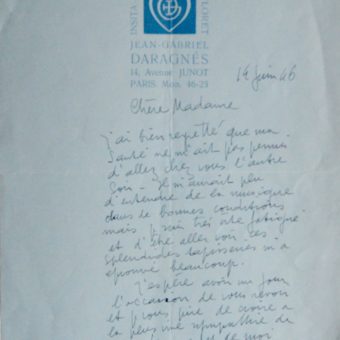 INSITA
FLORET
JEAN-GABRIEL
DARAGNÈS
14, Avenue JUNOT
PARIS Mon. 46-23
14 juin 46
Chère Madame
j'ai bien regretté que ma
santé ne m'ait pas permis
d'aller chez vous l'autre
soir
d'entendre de la musique
dans de bonnes conditions
mais je suis très vite fatigué
et d'être aller voir ces
splendides tapisseries m'a
éprouvé beaucoup.
J'espère avoir un jour
l'occasion de vous revoir
et vous prie de croire à
la plus vive sympathie de
moi